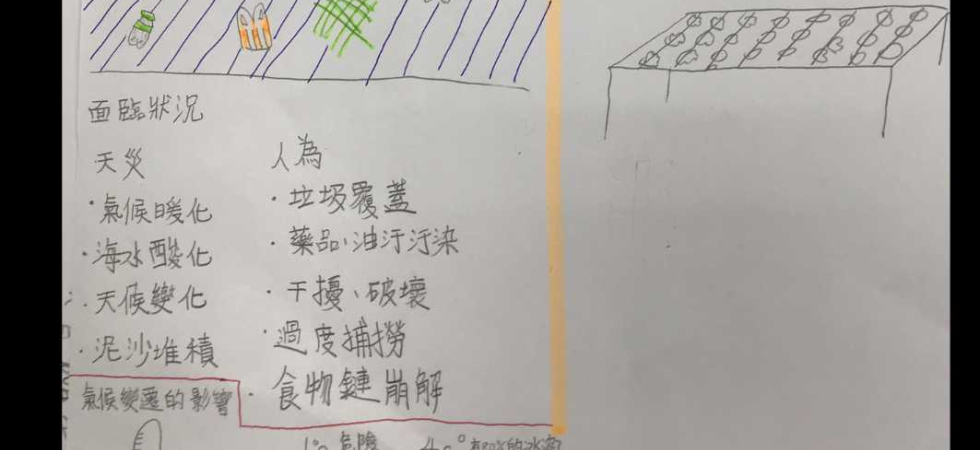 面臨狀況
天災
·氣候暖化
·海水酸化
·天候變化
·泥沙堆積
人為
·垃圾覆蓋
·藥品、油汙汙染
·干擾、破壞
·過度捕撈
·食物鏈崩解
氣候變遷的影響
1° 危險